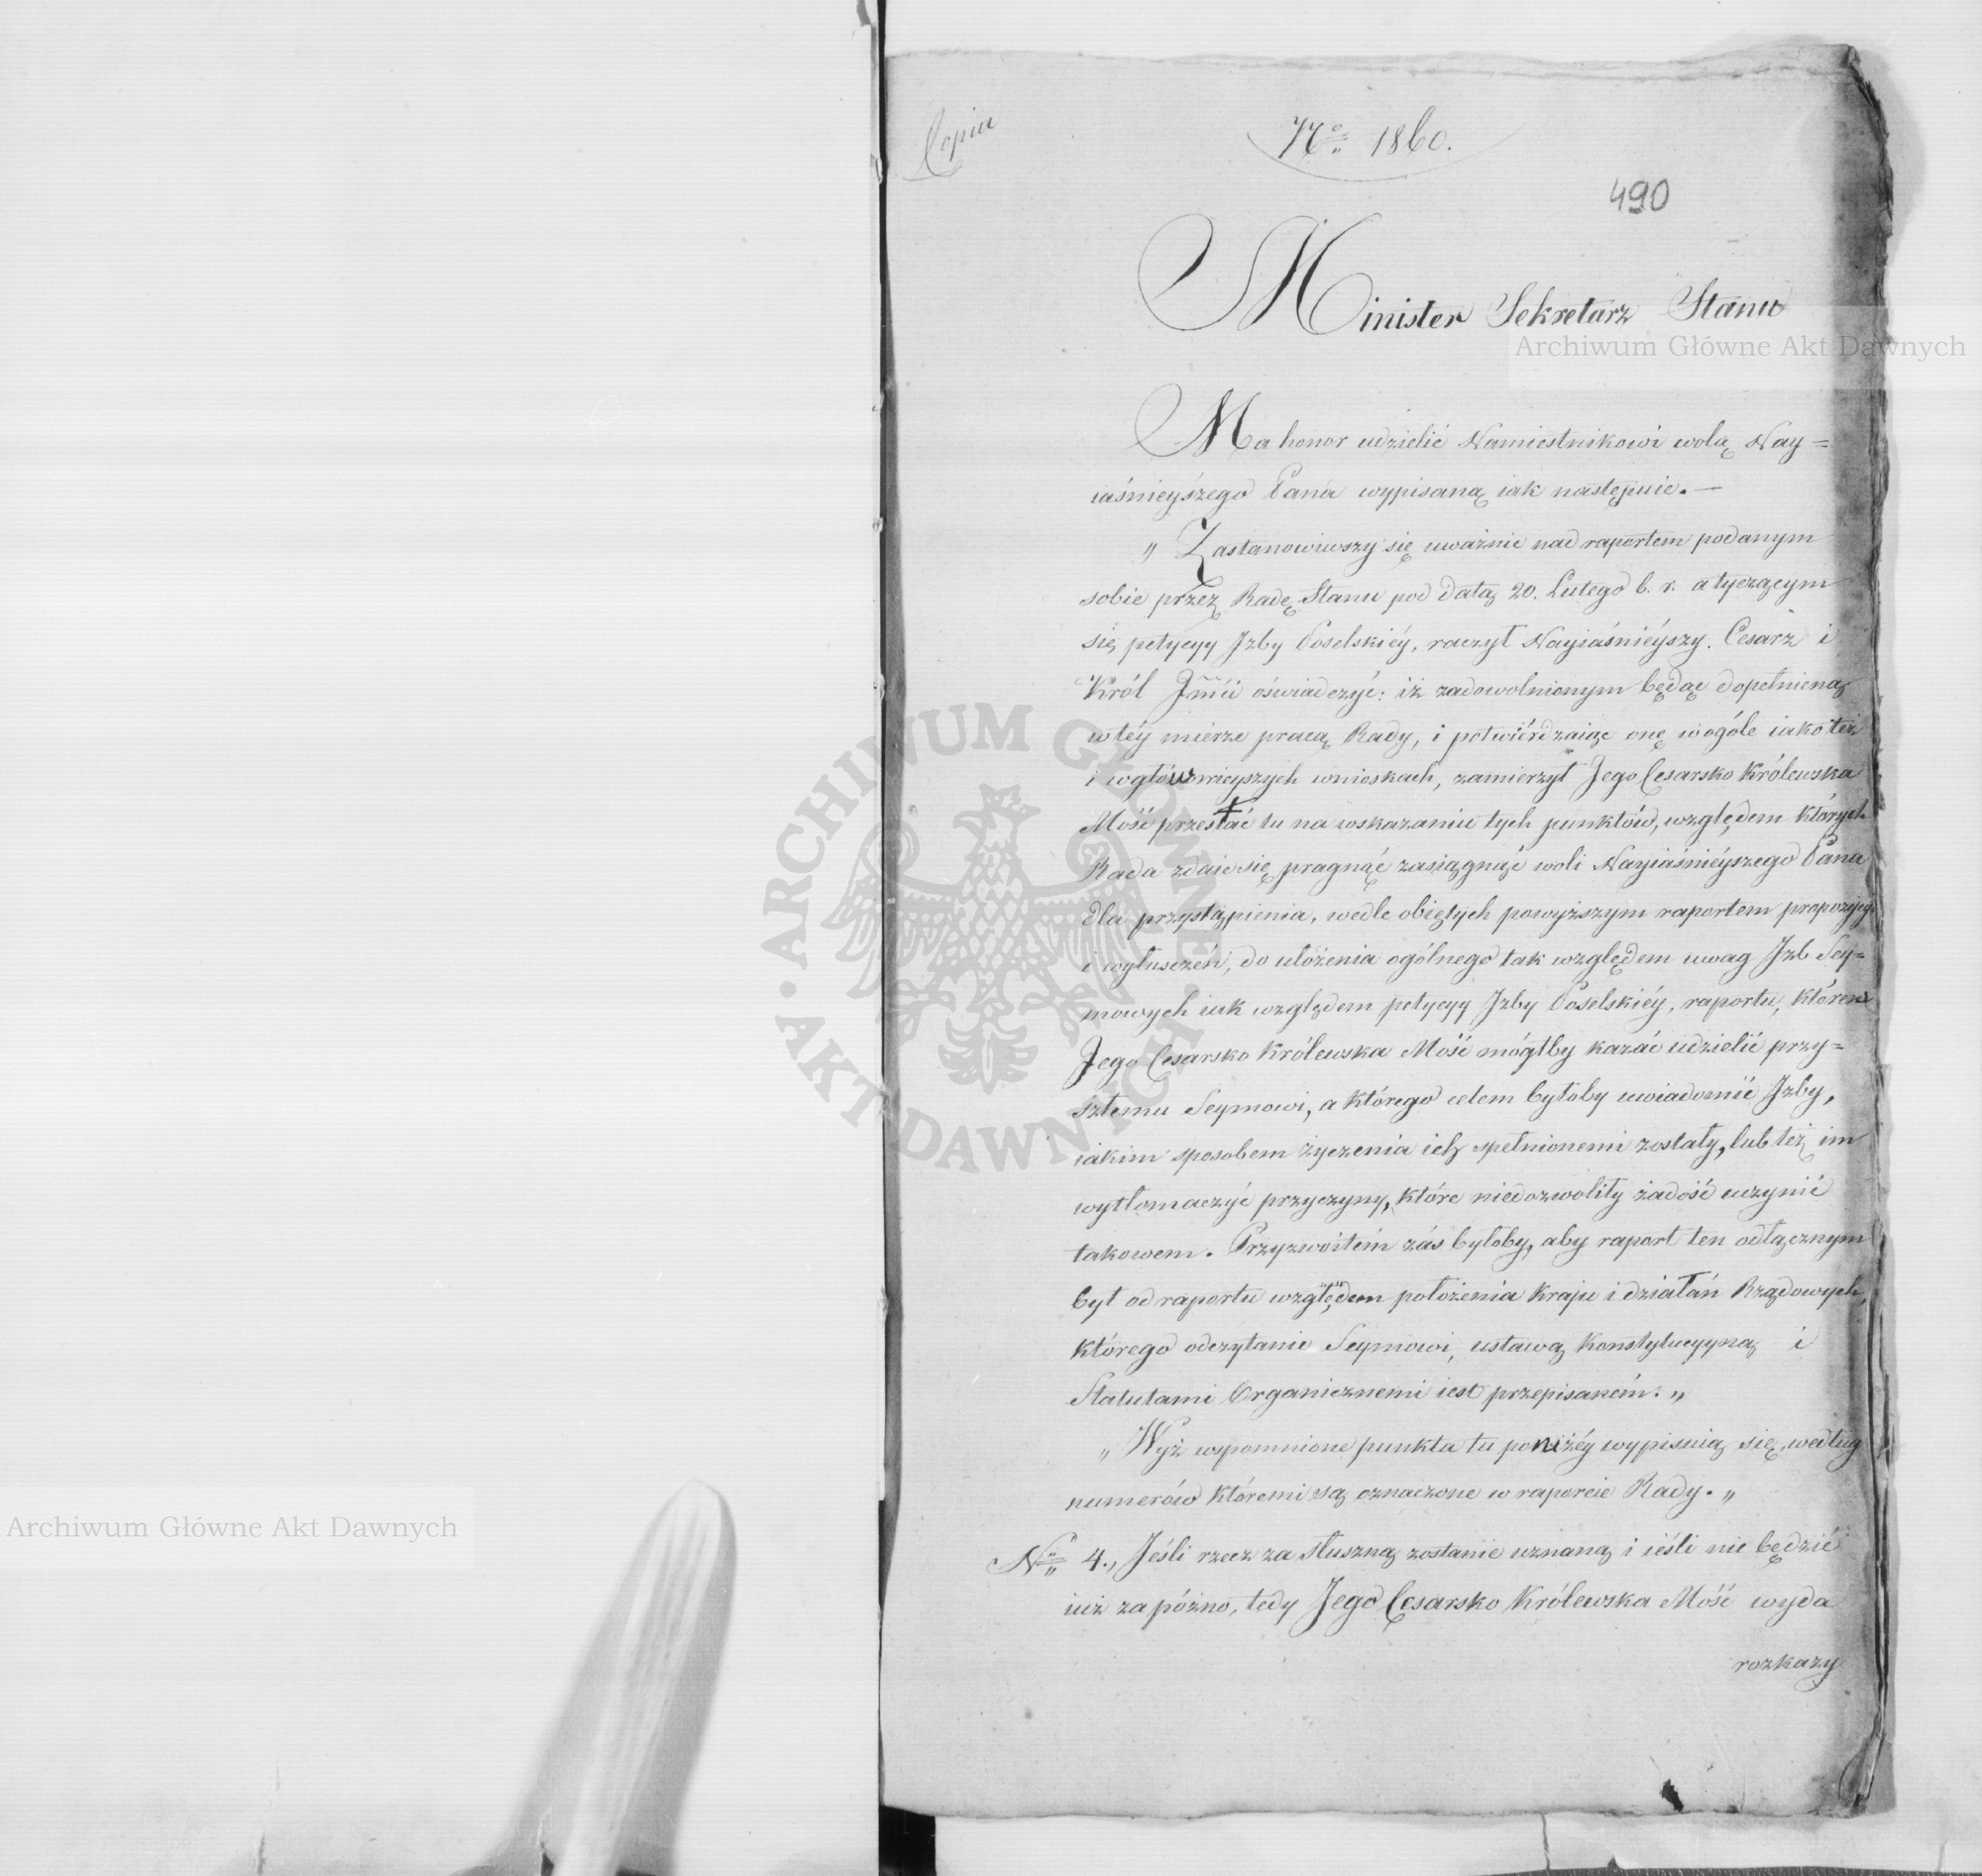 Copia
No. 1860.
490
Minister Sekretarz Stanu
Ma honor udzielić Namiestnikowi wolą Nay=
iaśnieyszego Pana wypisaną iak następuie. —
„ Zastanowiwszy się uważnie nad raportem podanym
sobie przez Radę Stanu pod datą 20. Lutego b. r. a tyczącym
się petycyy Jzby Poselskiéy, raczył Nayiaśniéyszy Cesarz i
Król Jmći oświadczyć: iż zadowolnionym będąc dopełnioną
w téy mierze pracą Rady, i potwiérdzaiąc onę w ogóle iako też
i w głównieyszych wnioskach, zamierzył Jego Cesarsko Królewska
Mość przestać tu na wskazaniu tych punktów, względem których
Rada zdaie się pragnąć zasiągnąć woli Nayiaśniéyszego Pana
dla przystąpienia, wedle obiętych powyższym raportem propozycyy
i wyłuszczeń, do ułożenia ogólnego tak względem uwag Jzb Sey=
mowych iak względem petycyy Jzby Poselskiéy, raportu, któren
Jego Cesarsko Królewska Mość mógłby kazać udzielić przy=
szłemu Seymowi, a którego celem byłoby uwiadomić Jzby,
iakim sposobem życzenia ich spełnionemi zostały, lub też im
wytłomaczyć przyczyny, które niedozwoliły zadość uczynić
takowem. Przyzwoitém zás byłoby, aby raport ten odłącznym
był od raportu względem położenia kraju i działań Rządowych,
którego odczytanie Seymowi, ustawą konstytucyyną i
Statutami Organicznemi iest przepisaném. „
„ Wyż wspomnione punkta tu poniżéy wypisuią się, według
numerów któremi są oznaczone w raporcie Rady. „
No. 4., Jeśli rzecz za słuszną zostanie uznaną i ieśli nie będzie
iuż zapóźno, tedy Jego Cesarsko Królewska Mość wyda
rozkazy
Archiwum Główne Akt Dawnych
Archiwum Główne Akt Dawnych
ARCHIWUM GŁÓWNE · AKT DAWNYCH ·